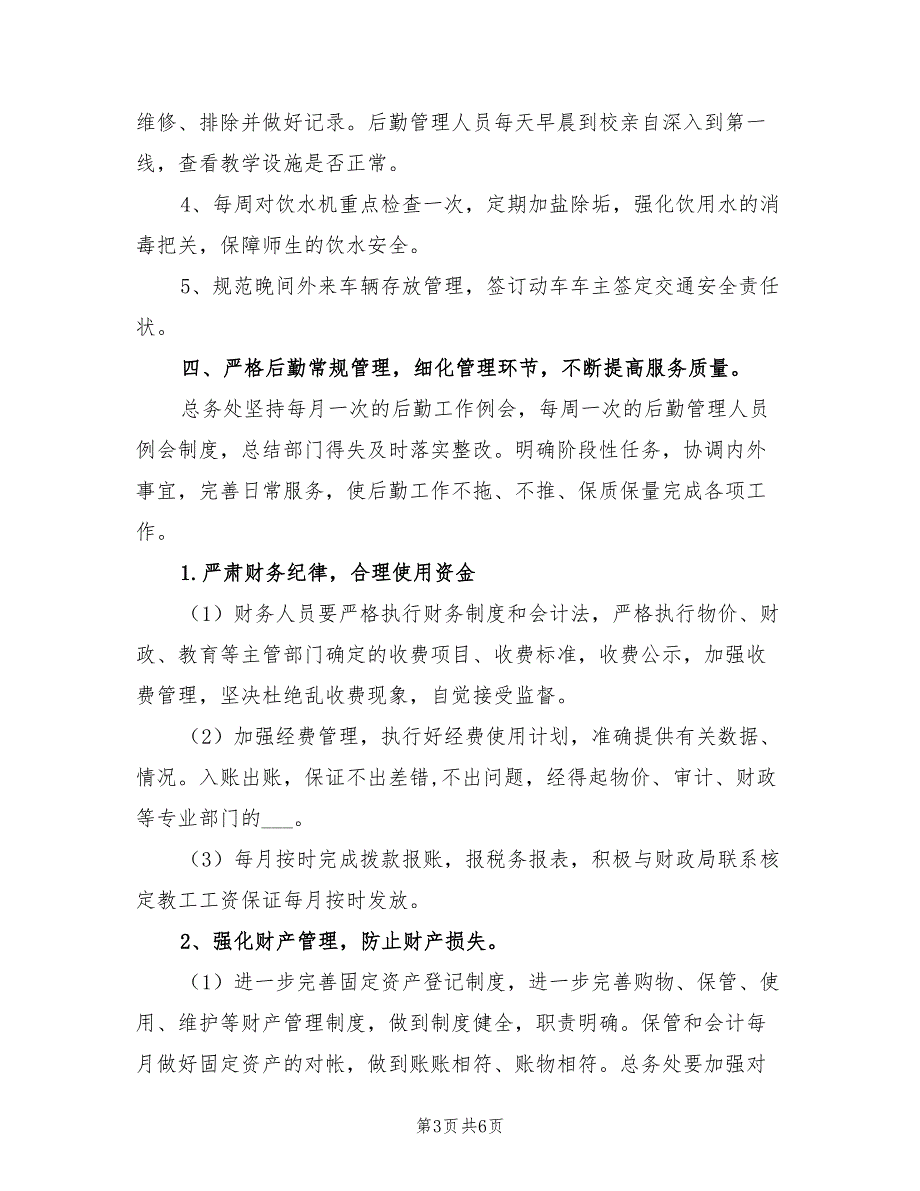 维修、排除并做好记录。后勤管理人员每天早晨到校亲自深入到第一
线，查看教学设施是否正常。
4、每周对饮水机重点检查一次，定期加盐除垢，强化饮用水的消
毒把关，保障师生的饮水安全。
5、规范晚间外来车辆存放管理，签订动车车主签定交通安全责任
状。
四、严格后勤常规管理，细化管理环节，不断提高服务质量。
总务处坚持每月一次的后勤工作例会，每周一次的后勤管理人员
例会制度，总结部门得失及时落实整改。明确阶段性任务，协调内外
事宜，完善日常服务，使后勤工作不拖、不推、保质保量完成各项工
作。
1.严肃财务纪律，合理使用资金
（1）财务人员要严格执行财务制度和会计法，严格执行物价、财
政、教育等主管部门确定的收费项目、收费标准，收费公示，加强收
费管理，坚决杜绝乱收费现象，自觉接受监督。
（2）加强经费管理，执行好经费使用计划，准确提供有关数据、
情况。入账出账，保证不出差错,不出问题，经得起物价、审计、财政
等专业部门的___。
（3）每月按时完成拨款报账，报税务报表，积极与财政局联系核
定教工工资保证每月按时发放。
2、强化财产管理，防止财产损失。
（1）进一步完善固定资产登记制度，进一步完善购物、保管、使
用、维护等财产管理制度，做到制度健全，职责明确。保管和会计每
月做好固定资产的对帐，做到账账相符、账物相符。总务处要加强对
第3页共6页